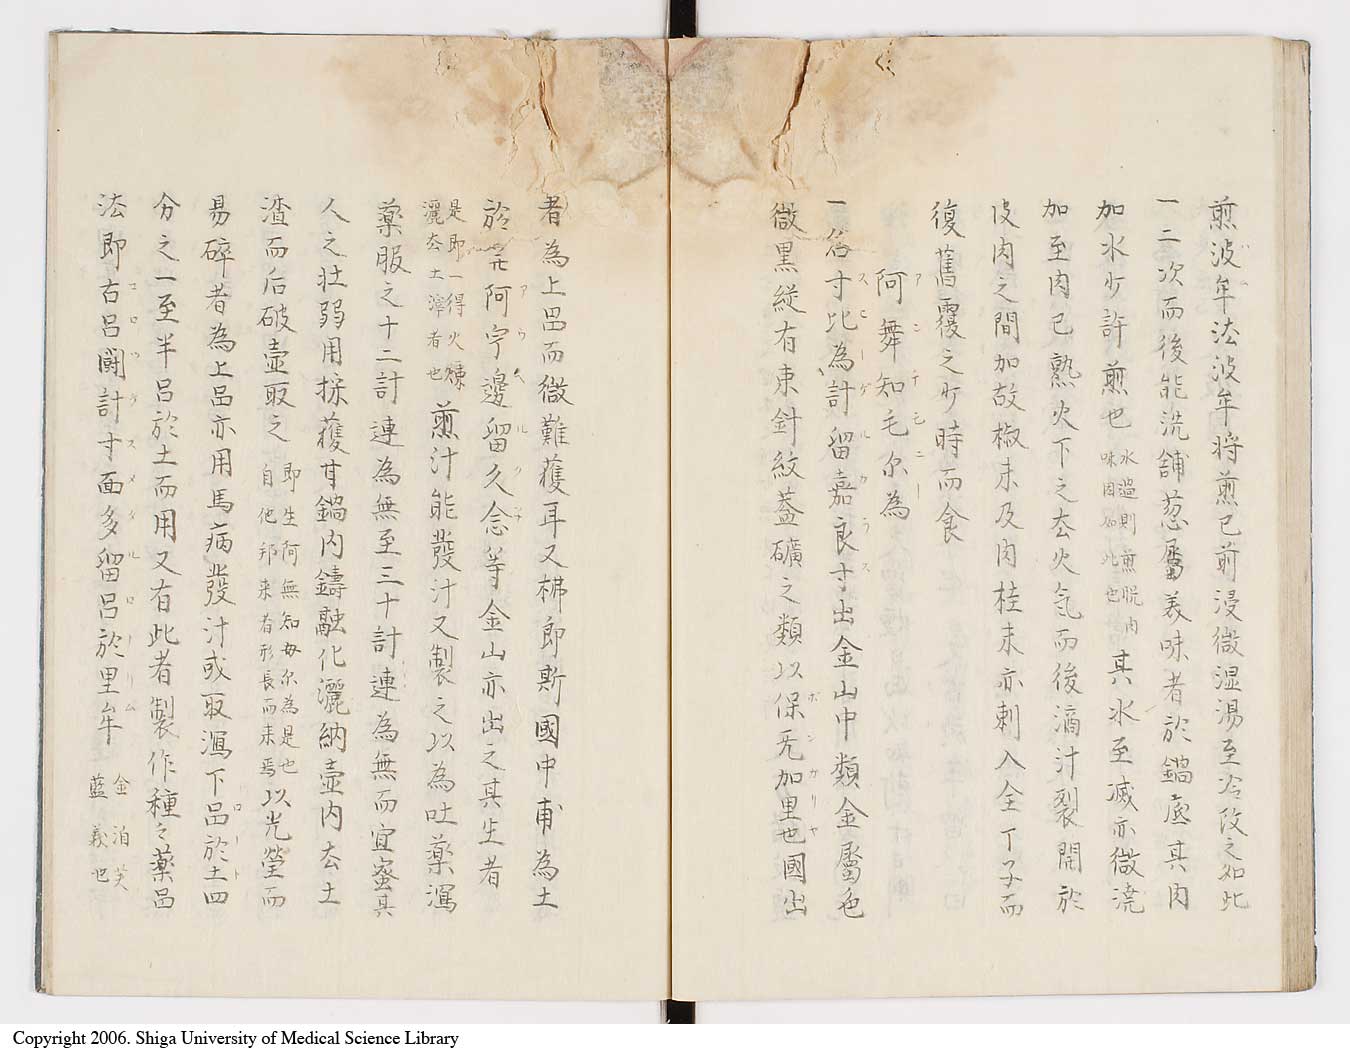 煎波牟法波牟將煎已前浸微湿湯至冷改之如此
一二次而後能洗舖葱属美味者於鍋底其肉
加水少許煎也 水過則煎脱肉味因如此也 其水至滅亦微澆
加至肉已熟火下之去火気而後滴汁裂開於
皮肉之間加胡椒末及肉桂末亦刺入全丁子而
復舊覆之少時而食
阿舞知毛尔為 アンチモニー
一名寸比為計留嘉良寸出金山中類金属色 スピーゲルカラス
微黒縦有束針紋蓋礦之類以保旡加里也國出 ボシカリヤ
者為上品而微難獲耳又柫郎斯國中甫為土
於旡阿宇邊留久念等金山亦出之其生者
是即一得火煉灑去土滓者也 煎汁能發汁又製之以為吐薬瀉
薬服之十二計連為無至三十計連為無而宜蜜其
人之壮弱用採獲甘鍋内鑄融化灑納壺内去土
渣而后破壺取之 即生阿無知毋尔為是也自他邦来者形長而来焉 以光瑩而
易碎者為上品亦用馬病發汁或取瀉下品於土四
分之一至半呂於土而用又有此者製作種々薬品
法即古呂闘計寸面多留呂於里牟 金泊芙藍義也 コロツグスメタルローリム
Copyright 2006. Shiga University of Medical Science Library